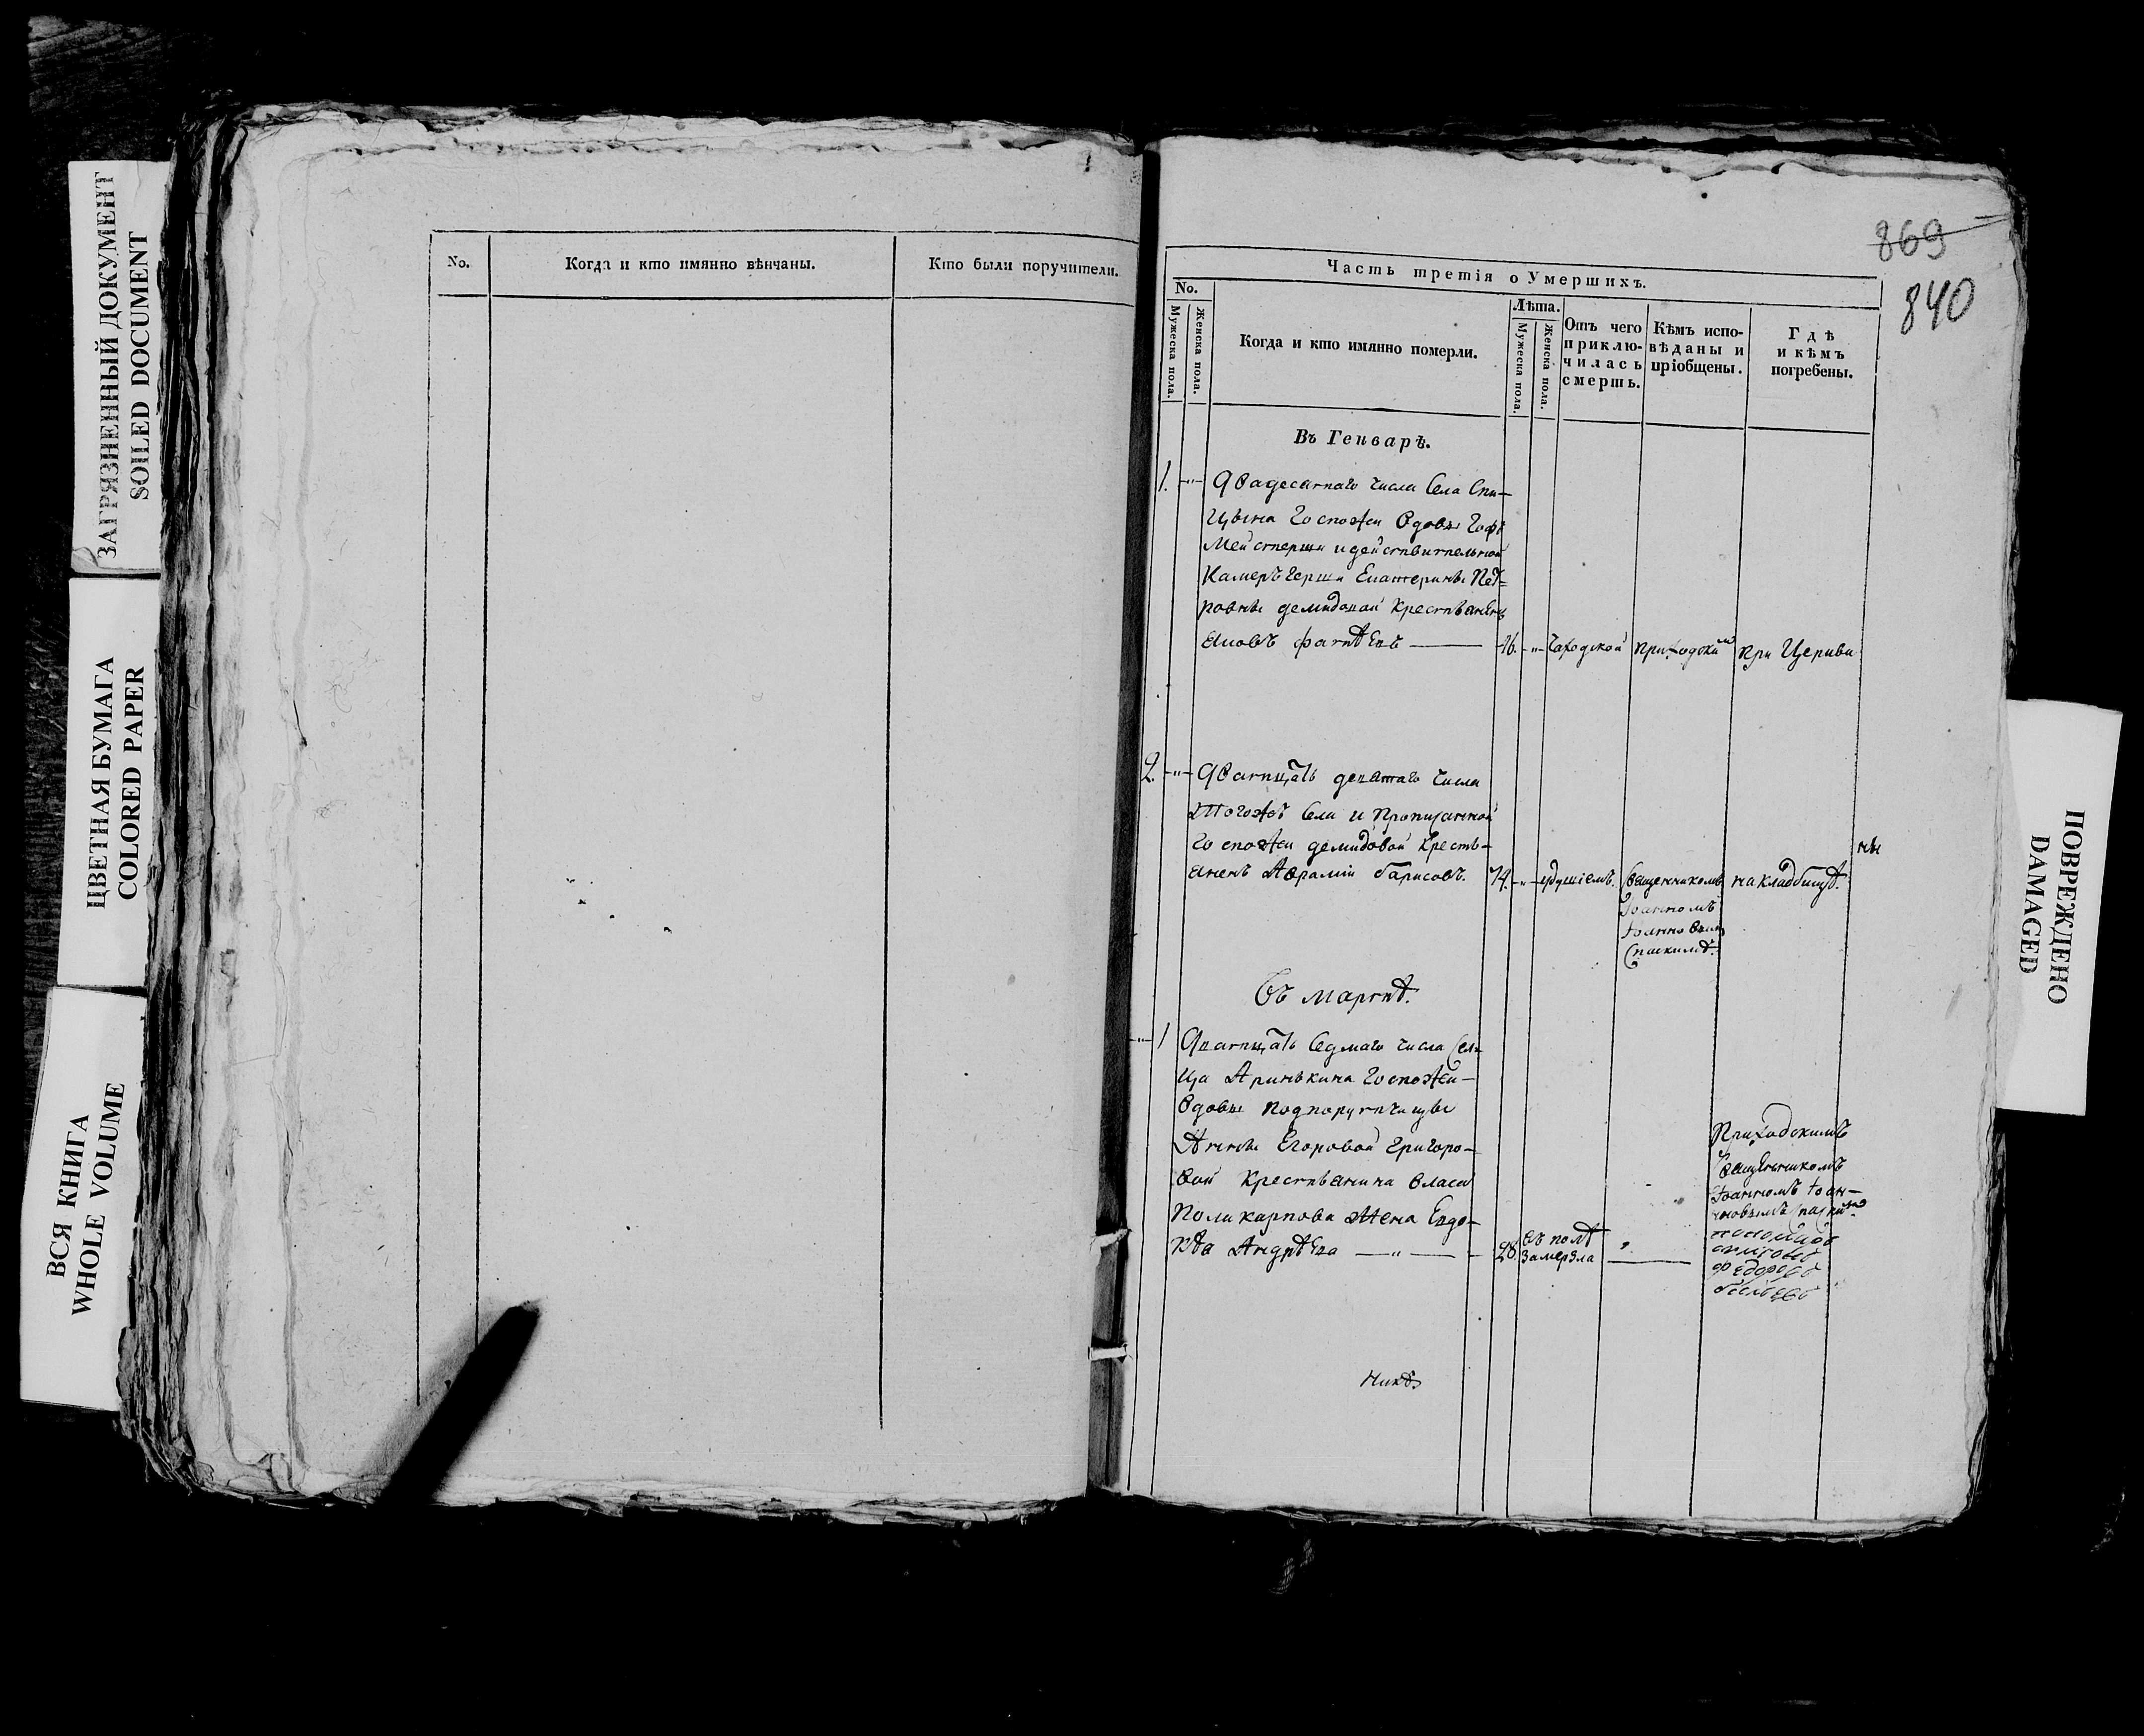 ЗАГРЯЗНЕННЫЙ ДОКУМЕНТ
SOILED DOCUMENT
ЦВЕТНАЯ БУМАГА
COLORED PAPER
ВСЯ КНИГА
WHOLE VOLUME
No.
Когда и кто имянно вѣнчаны.
Кто были поручители.
869
840
Часть третія о Умершихъ.
No.
Мужеска пола.
Женска пола.
Когда и кто имянно померли.
Лѣта.
Мужеска пола.
Женска пола.
Отъ чего
приклю-
чилась
смерть.
Кѣмъ испо-
вѣданы и
пріобщены.
Гдѣ
и кѣмъ
погребены.
Въ Генварѣ.
1. Двадесятаго числа Села Спи-
цына Госпожи вдовы Гоф
мейстерши и действительной
Камеръ герши Екатерины Пет-
ровны демидовой крестьянинъ
Іаковъ фатѣевъ 76. Чахоткой приходским при Церкви
2. Дватцать девятаго числа
тогожъ Села и Прописанной
Госпожи демидовой кресть-
янинъ Авраміи барисовъ. 74. удушіемъ. Священникомъ на кладбищѣ.
Іоанномъ
Іоанновым
Спаскимъ.
ны
Въ мартѣ.
1 Дватцать Седмаго числа Сель
ца Аринькина Госпожи
вдовы подпорутчицы
Анны Егоровой Григоро-
вой крестьянина власа
Поликарпова жена Евдо-
кѣя Андрѣева 28. въ полѣ
замерзла
Приходскимъ
Священникомъ
Іоанномъ Іоан-
новымъ Спаским
никѣ
ПОВРЕЖДЕНО
DAMAGED